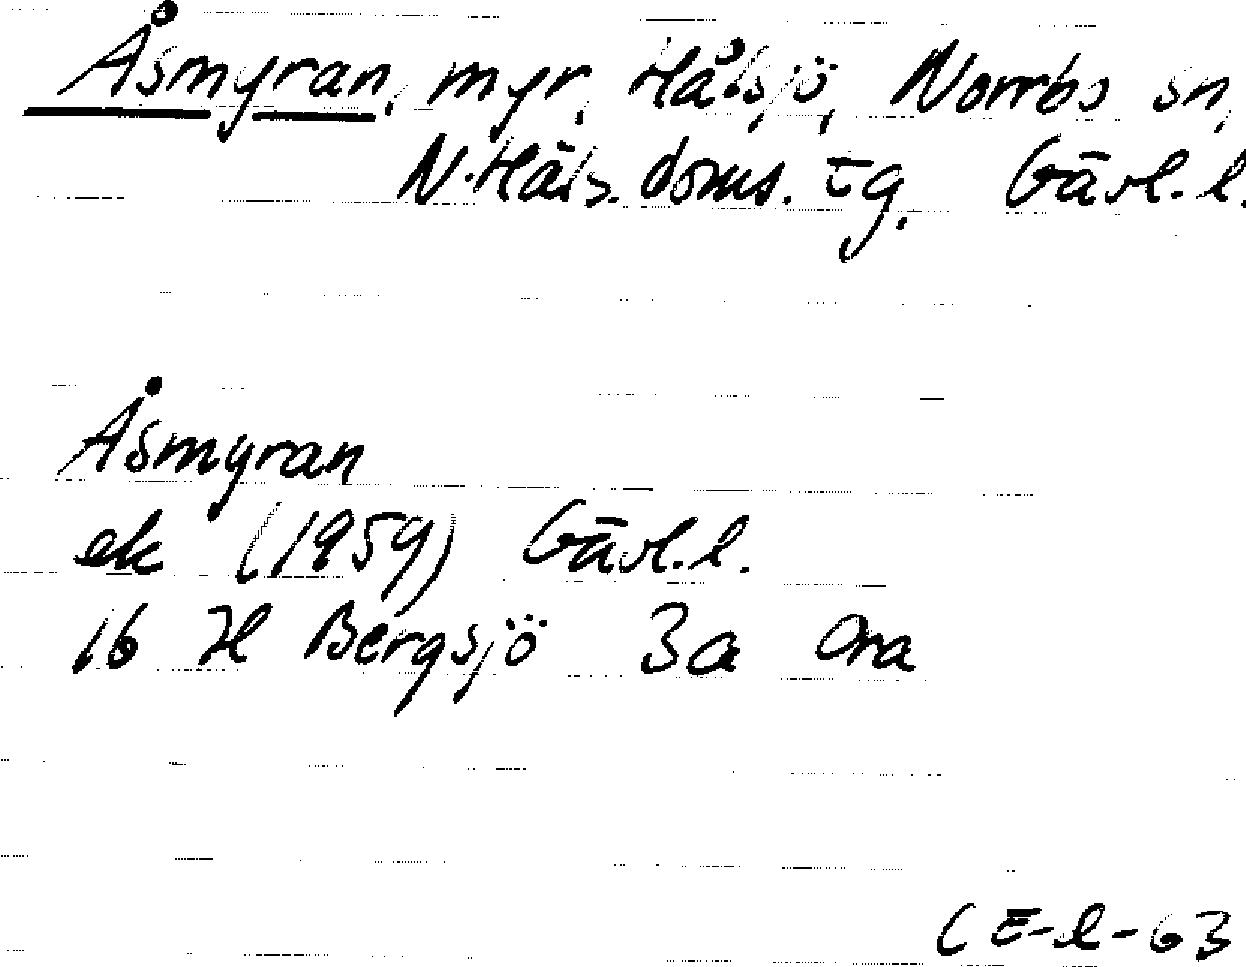 Åsmyran, myr, Hålsjö, Norrbo sn,
N. Häls. doms. tg. Gävl. l.
Åsmyran
ek (1959) Gävl. l.
16 H Bergsjö 3a
CE-l-63